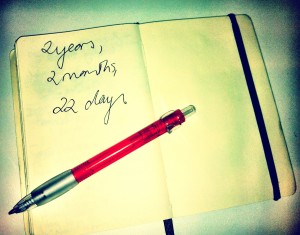 2 years,
2 months,
22 days